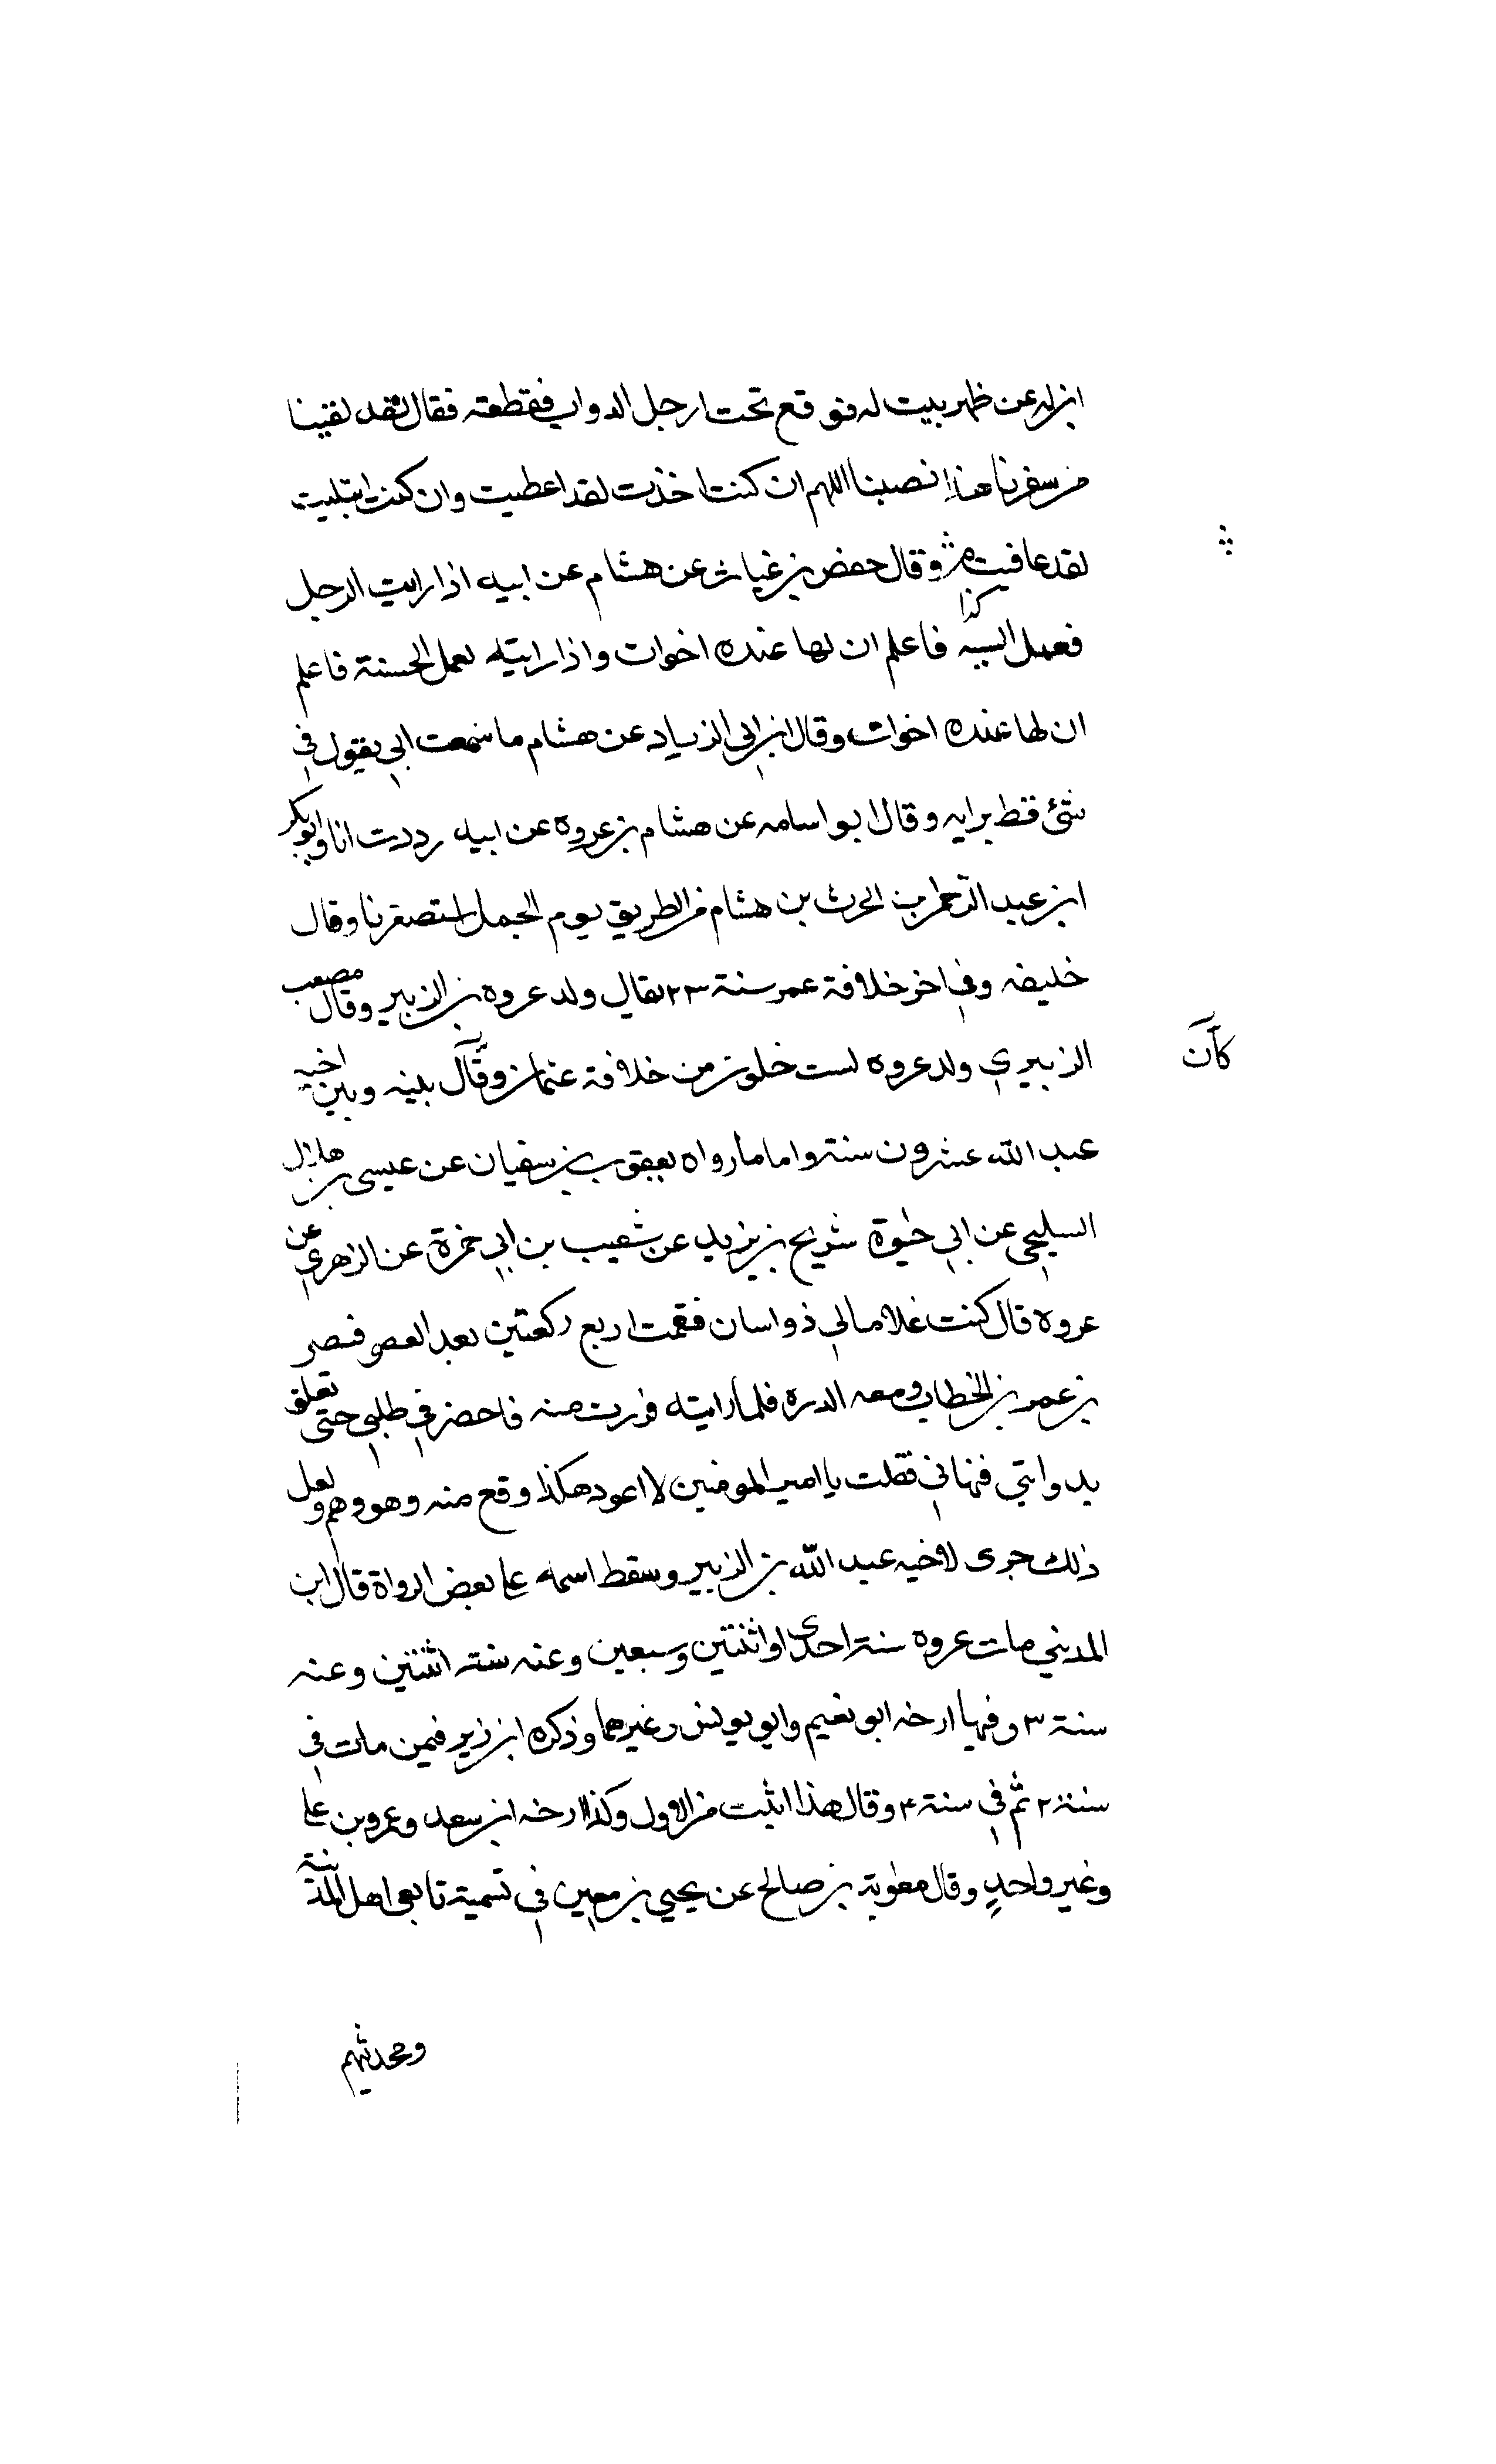 ابن له عن ظهر بيت له فوقع تحت ارجل الدواب فقطعته فقال لقد لقينا
من سفرنا هذا نصبنا اللهم ان كنت اخذت لقد اعطيت وان كنت ابتليت
لقد عافيت وقال حفص بن غياث عن هشام عن ابيه اذا رايت الرجل
كذا
فعمل السيه فاعلم ان لها عنده اخوات واذا رايته يعمل الحسنة فاعلم
ان لها عنده اخوات وقال ابن ابي الزياد عن هشام ما سمعت ابي يقول في
شئ قط برايه وقال ابو اسامه عن هشام بن عروه عن ابيه رددت انا وابو بكر
ابن عبد الرحمن بن الحرث بن هشام من الطريق يوم الجمل استصغرنا وقال
خليفه وفي اخر خلافة عمر سنة ٢٣ يقال ولد عروه بن الزبير وقال مصعب
الزبيري ولد عروه لست خلون من خلافة عثمان وقال بينه وبين اخيه
كان
عبد الله عشرون سنة واما ما رواه يعقوب بن سفيان عن عيسى بن هلال
السليحى عن ابي حيوة شريح بن يزيد عن شعيب بن ابي حمزة عن الزهري عن
عروه قال كنت غلاما لي ذواسان فقمت اربع ركعتين بعد العصر فبصر
بن عمر بن الخطاب ومعه الدره فلما رايته فررت منه فاحضر في طلبي حتى تعلق
بدوابتي فنهاني فقلت يا امير المومنين لا اعود هكذا وقع منه وهو وهم ولعل
ذلك جرى لاخيه عبد الله بن الزبير وسقط اسمه على بعض الرواة قال ابن
المديني مات عروه سنة احدى او اثنتين وسبعين وعنه سنة اثنتين وعنه
سنة ٣ وفيها ارخه ابو نعيم وابو يونس وغيرهما وذكره ابن زبر فيمن مات في
سنة ٢ ثم في سنة ٤ وقال هذا اثبت من الاول وكذا ارخه ابن سعد وعمرو بن على
وغير واحد وقال معوية بن صالح عن يحيي بن معين في تسمية تابعى اهل المدينة
ومحدثيهم